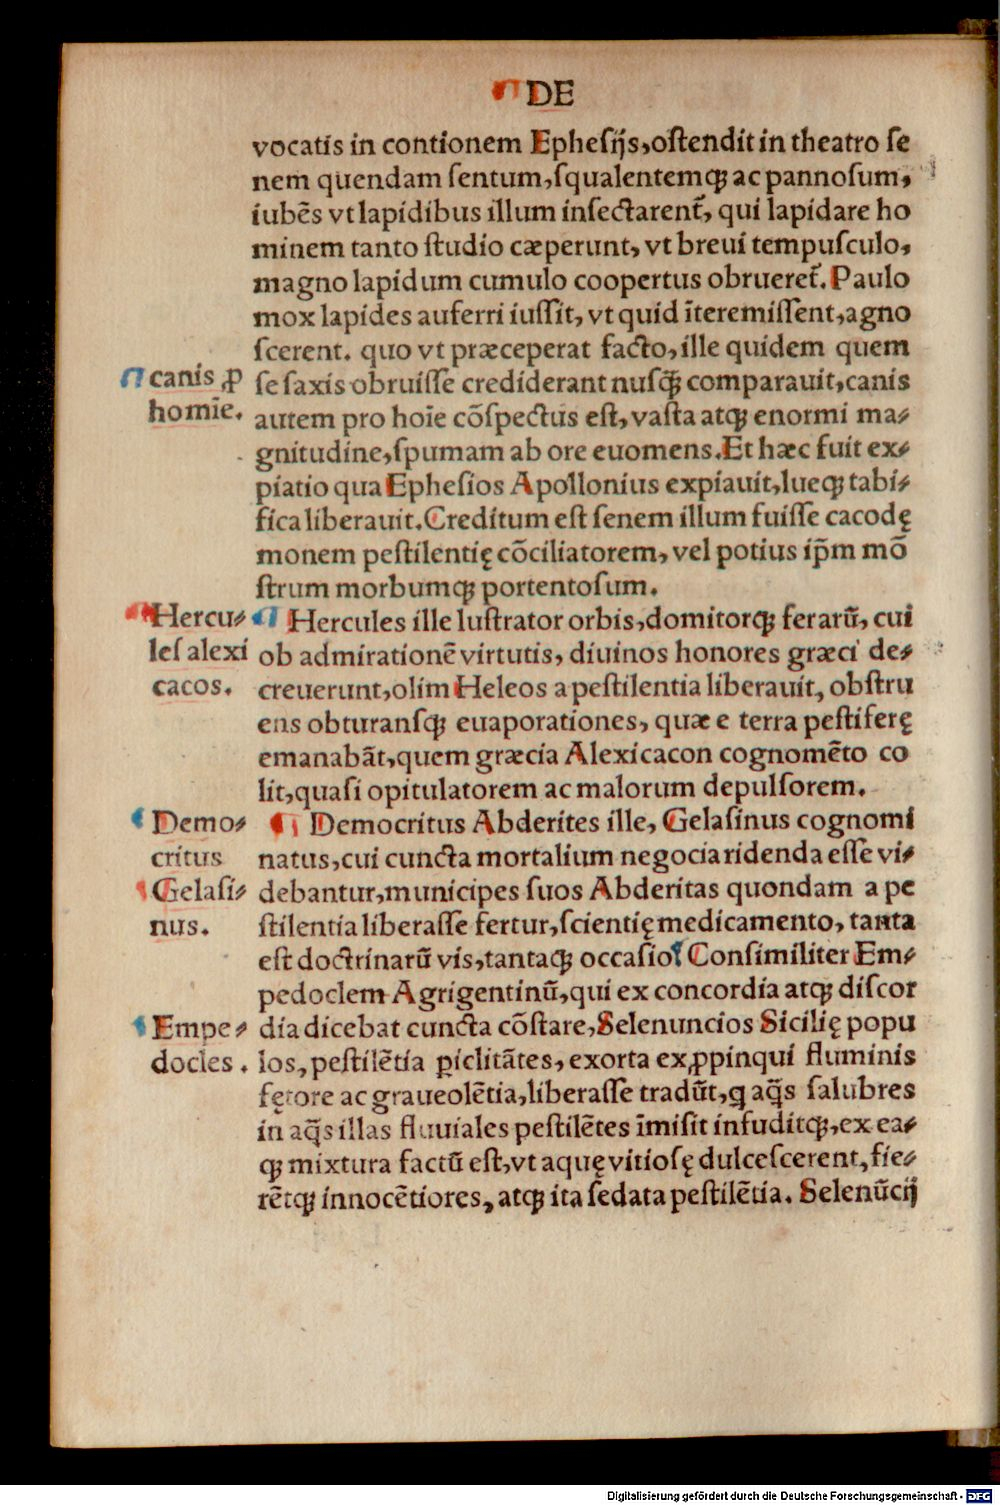 DE
vocatis in contionem Ephesijs, ostendit in theatro se
nem quendam sentum, squalentemqꝫ ac pannosum,
iubēs vt lapidibus illum insectarent᷑, qui lapidare ho
minem tanto studio cæperunt, vt breui tempusculo,
magno lapidum cumulo coopertus obrueret᷑. Paulo
mox lapides auferri iussit, vt quid īteremissent, agno
scerent. quo vt præceperat facto, ille quidem quem
canis ꝓ
homīe.
se saxis obruisse crediderant nusqꝫ̄ comparauit, canis
autem pro hoīe cōspectus est, vasta atqꝫ enormi ma⸗
gnitudine, spumam ab ore euomens. Et hæc fuit ex⸗
piatio qua Ephesios Apollonius expiauit, lueqꝫ tabi⸗
fica liberauit. Creditum est senem illum fuisse cacodę
monem pestilentię cōciliatorem, vel potius ip̄m mō
strum morbumqꝫ portentosum.
Hercu⸗
les alexi
cacos.
¶ Hercules ille lustrator orbis, domitorqꝫ ferarū, cui
ob admirationē virtutis, diuinos honores græci de⸗
creuerunt, olim Heleos a pestilentia liberauit, obstru
ens obturansqꝫ euaporationes, quæ e terra pestiferę
emanabāt, quem græcia Alexicacon cognomēto co
lit, quasi opitulatorem ac malorum depulsorem.
Demo⸗
critus
Gelasi⸗
nus.
¶ Democritus Abderites ille, Gelasinus cognomi
natus, cui cuncta mortalium negocia ridenda esse vi⸗
debantur, municipes suos Abderitas quondam a pe
stilentia liberasse fertur, scientię medicamento, tanta
est doctrinarū vis, tantaqꝫ occasio Consimiliter Em⸗
pedoclem Agrigentinū, qui ex concordia atqꝫ discor
Empe⸗
docles.
dia dicebat cuncta cōstare, Selenuncios Sicilię popu
los, pestilētia ꝑiclitātes, exorta ex ꝓpinqui fluminis
fętore ac graueolētia, liberasse tradūt, ꝙ aq̄s salubres
in aq̄s illas fluuiales pestilētes īmisit infuditqꝫ, ex ea⸗
qꝫ mixtura factū est, vt aquę vitiosę dulcescerent, fie⸗
rētqꝫ innocētiores, atqꝫ ita sedata pestilētia. Selenūcij
Digitalisierung gefördert durch die Deutsche Forschungsgemeinschaft - DFG